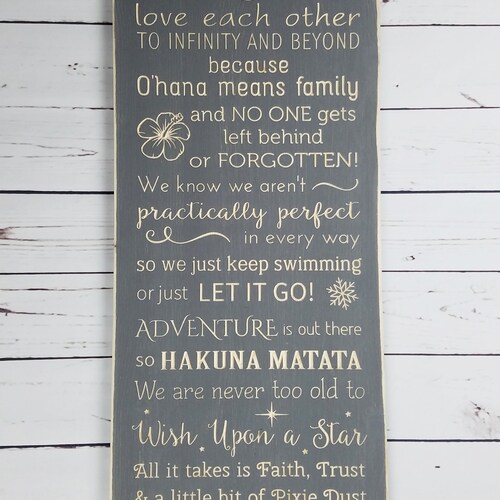 love each other
TO INFINITY AND BEYOND
because
O'hana means family
and NO ONE gets
left behind
or FORGOTTEN!
We know we aren't
practically perfect
in every way
so we just keep swimming
or just LET IT GO!
ADVENTURE is out there
so HAKUNA MATATA
We are never too old to
Wish Upon a Star
All it takes is Faith, Trust
& a little bit of Pixie Dust